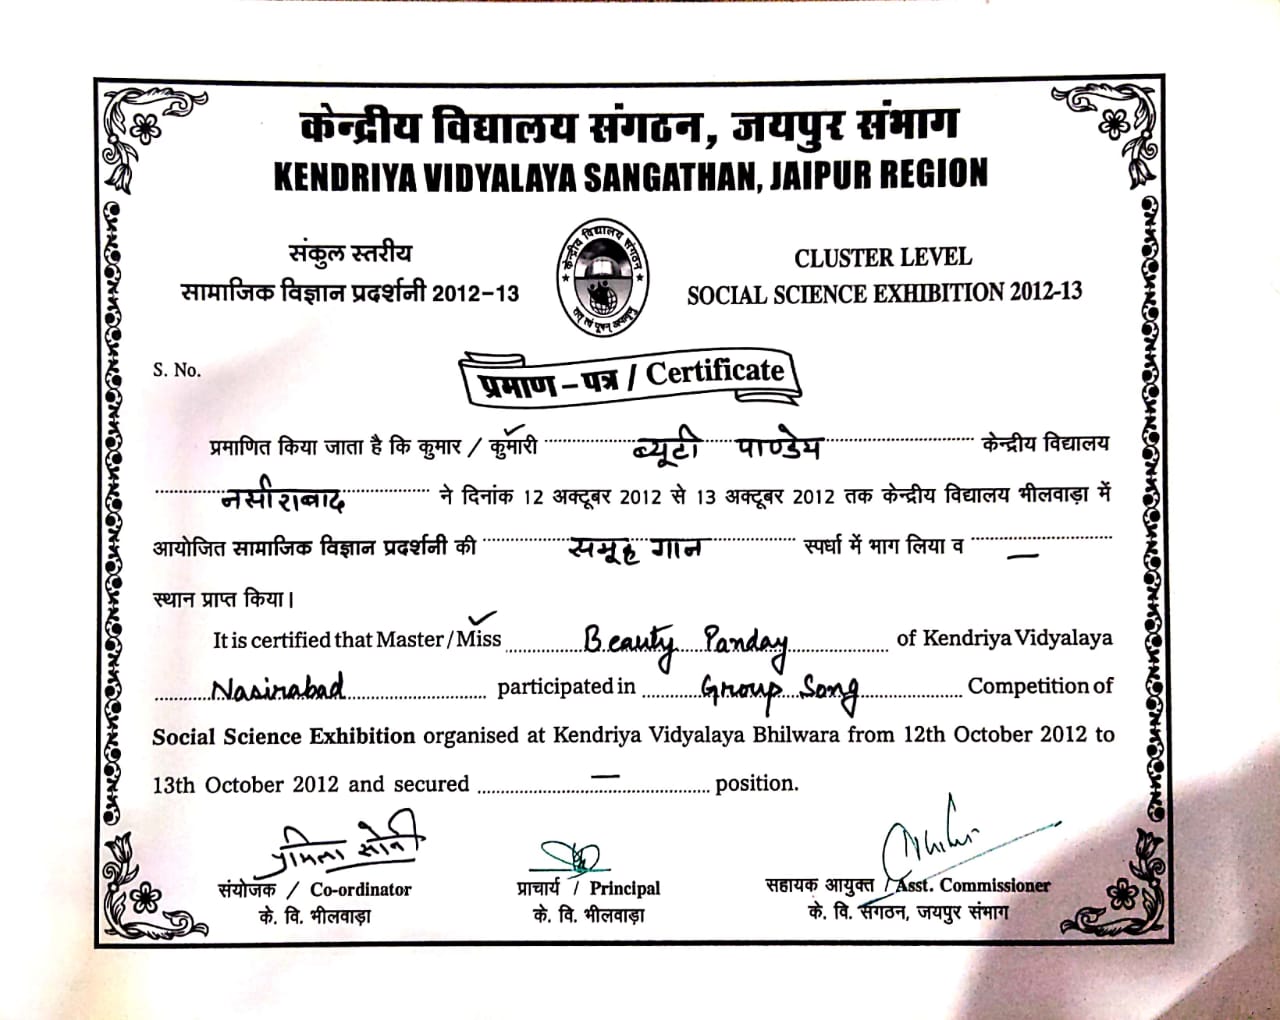 केन्द्रीय विद्यालय संगठन, जयपुर संभाग
KENDRIYA VIDYALAYA SANGATHAN, JAIPUR REGION
संकुल स्तरीय
सामाजिक विज्ञान प्रदर्शनी 2012-13
केन्द्रीय विद्यालय संगठन
तत् त्वं पूषन् अपावृणु
CLUSTER LEVEL
SOCIAL SCIENCE EXHIBITION 2012-13
S. No.
प्रमाण - पत्र / Certificate
प्रमाणित किया जाता है कि कुमार / कुमारी ब्यूटी पाण्डेय केन्द्रीय विद्यालय
नसीराबाद ने दिनांक 12 अक्टूबर 2012 से 13 अक्टूबर 2012 तक केन्द्रीय विद्यालय भीलवाड़ा में
आयोजित सामाजिक विज्ञान प्रदर्शनी की समूह गान स्पर्धा में भाग लिया व —
स्थान प्राप्त किया।
It is certified that Master / Miss Beauty Panday of Kendriya Vidyalaya
Nasirabad participated in Group Song Competition of
Social Science Exhibition organised at Kendriya Vidyalaya Bhilwara from 12th October 2012 to
13th October 2012 and secured — position.
प्रमिला सोनी
संयोजक / Co-ordinator
के. वि. भीलवाड़ा
प्राचार्य / Principal
के. वि. भीलवाड़ा
सहायक आयुक्त / Asst. Commissioner
के. वि. संगठन, जयपुर संभाग